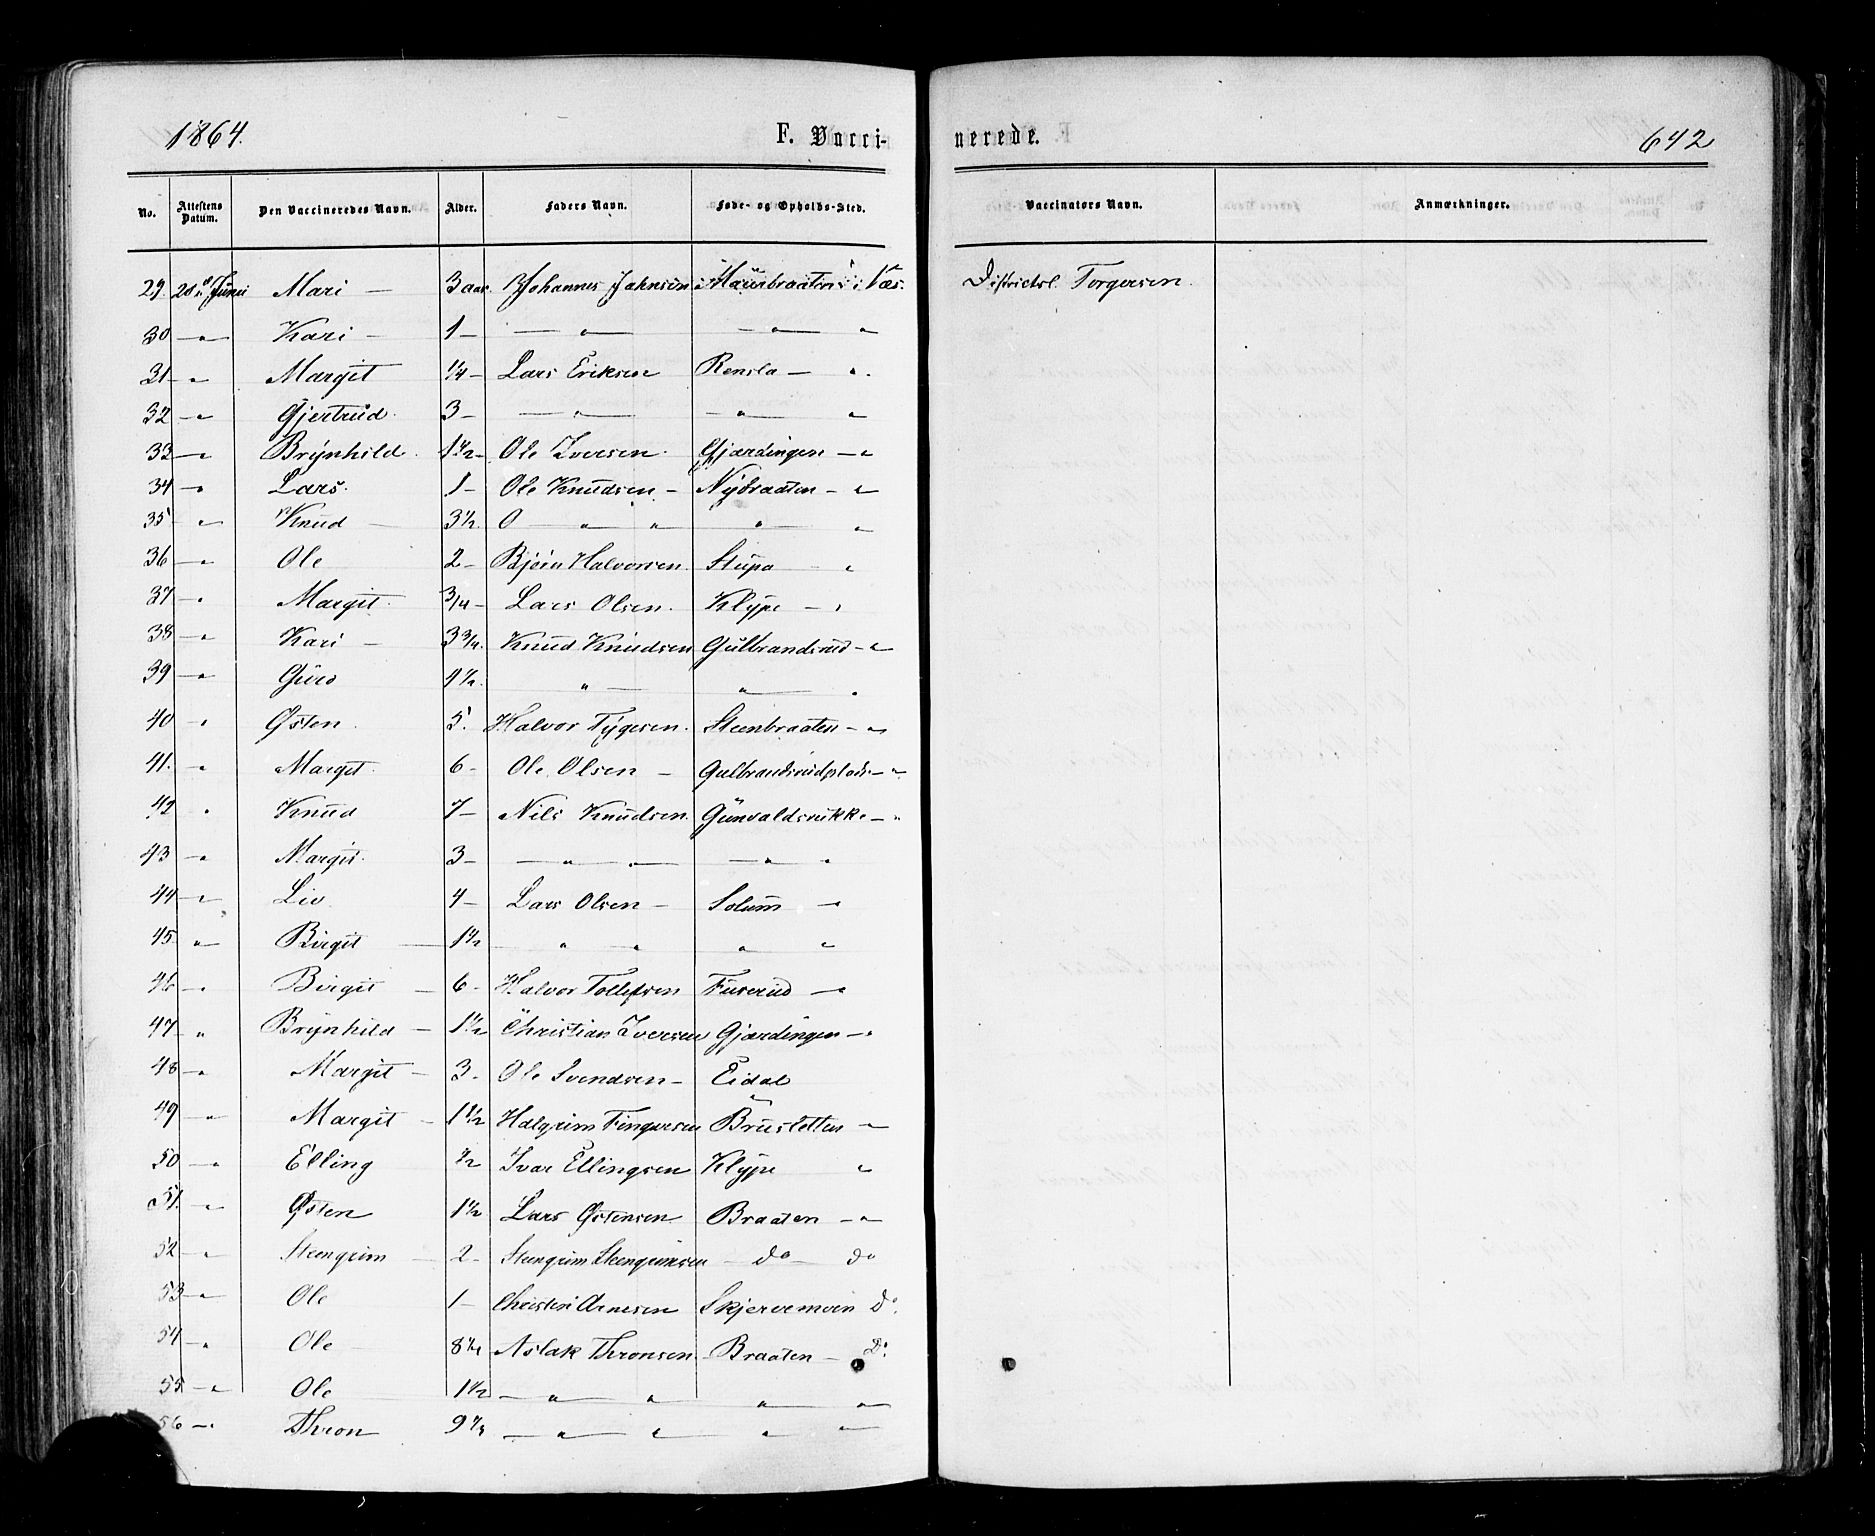 1864. F. Vacci- nerede. 642
No. Attestens Datum. Den Vaccineredes Navn. Alder. Faders Navn. Føde- og Opholds-Sted. Vaccinators Navn. Anmærkninger.
29. 20de Juni Mari — 3 aar. Johannes Jahnsen i Næs. Districtsl. Torgersen.
30 — " Kari — 1 — — " — — " — "
31 — " Margit 1/4 — Lars Eriksen Rensla — ".
32 — " Gjertrud. 3 — — " — — " — "
33 — " Brynhild. 1 1/2 — Ole Iversen. Gjærdingen — "
34 — " Lars. 1 — Ole Knudsen — Nybraaten — "
35 — " Knud — 3 1/2. O — " — " — " — "
36 — " Ole 2 — Bjørn Halvorsen. Stupa — "
37 — " Margit. 3/4 — Lars Olsen. Klype — "
38 — " Kari — 3 3/4. Knud Knudsen Gulbrandsrud — "
39 — " Guro 1 1/2. — " — — " — "
40 — " Østen. 5. Halvor Tygesen. Steenbraaten — "
41. — " Margit. 6 — Ole Olsen — Gulbrandsrudplads — "
42 " Knud 7 — Nils Knudsen. Gunvaldsrukke — "
43 — " Margit. 3 — — " — " — — " — "
44 — " Liv 4 — Lars Olsen — Solum — "
45 — " Birgit — 1 1/2 — " — " — " — "
46 — " Birgit — 6 — Halvor Tollefsen Fuserud — "
47 — " Brynhild — 1 1/2 Christian Iversen Gjærdingen — "
48 — " Margit — 3. Ole Svendsen — Eidal
49 — " Margit — 1 1/2 Halgrim Fingersen Brusletten — "
50 — " Elling 1/2 Ivar Ellingsen Klype "
51. — " Østen 1 1/2 Lars Østensen Braaten — "
52 — " Steengrim — 2 — Steengrim Steengrimsen — do — do
53 — " Ole 1 — Christen Arnesen Skjervemoen do.
54 — " Ole — 8 1/2 Aslak Thronsen. Braaten — Do
55 — " Ole 1 1/2 — " — " — " — "
56 — " Thron 9 1/2 — " — " — " — "